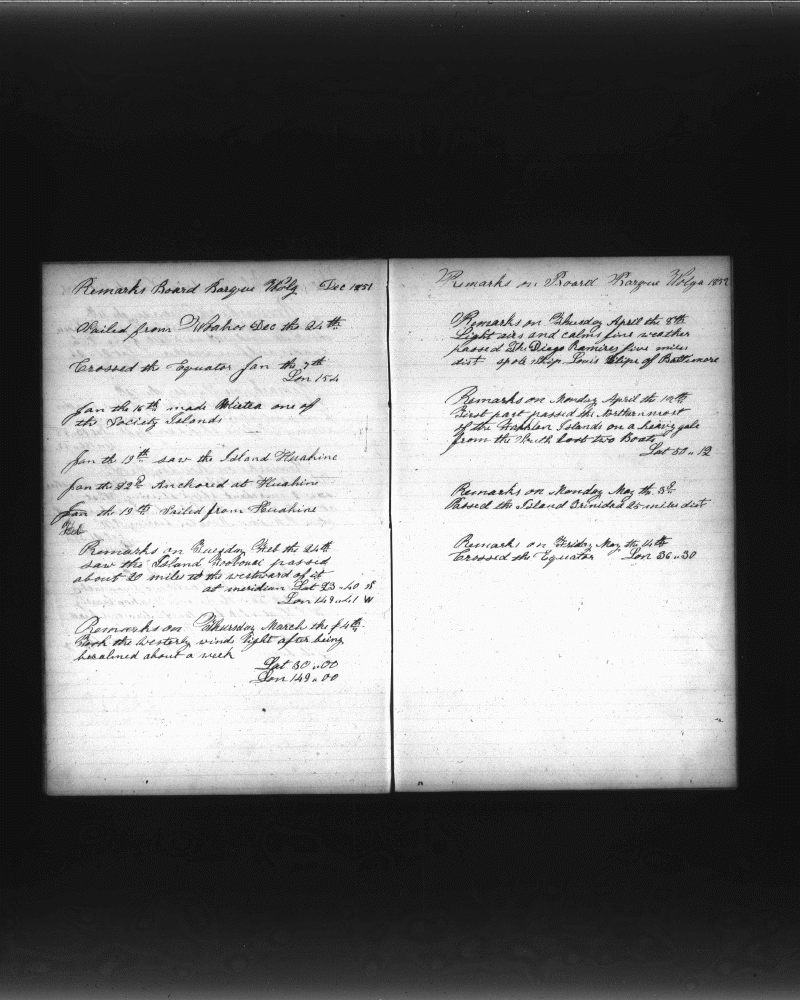 Remarks Board Barque Wolg Dec 1851
Sailed from Woahoo Dec the 24th
Crossed the Equator Jan the 7th
Lon 154
Jan the 16th made Ulietea one of
the Society Islands
Jan th 19th saw the Island Huahine
Jan the 22d Anchored at Huahine
Jan the 19th Sailed from Huahine
Feb
Remarks on Tuesday Feb the 24th
saw the Island passed
about 20 miles to the westward of it
at meridian Lat 23 " 40 S
Lon 149 " 41 W
Remarks on Thursday March the 4th
Took the westerly winds light after being
becalmed about a week
Lat 30 " 00
Lon 149 " 00
Remarks on Board Barque Wolga 1852
Remarks on Thursday April the 8th
Light airs and calms fine weather
passed The Diego Ramires five miles
dist spoke ship Louis of Baltimore
Remarks on Monday April the 12th
First part passed the Northernmost
of the Islands on a heavy gale
from the South Lost two Boats
Lat 50 " 12
Remarks on Monday May th 3d
Passed the Island Trinidad 25 miles dist
Remarks on Friday May the 14th
Crossed the Equator Lon 36 " 30